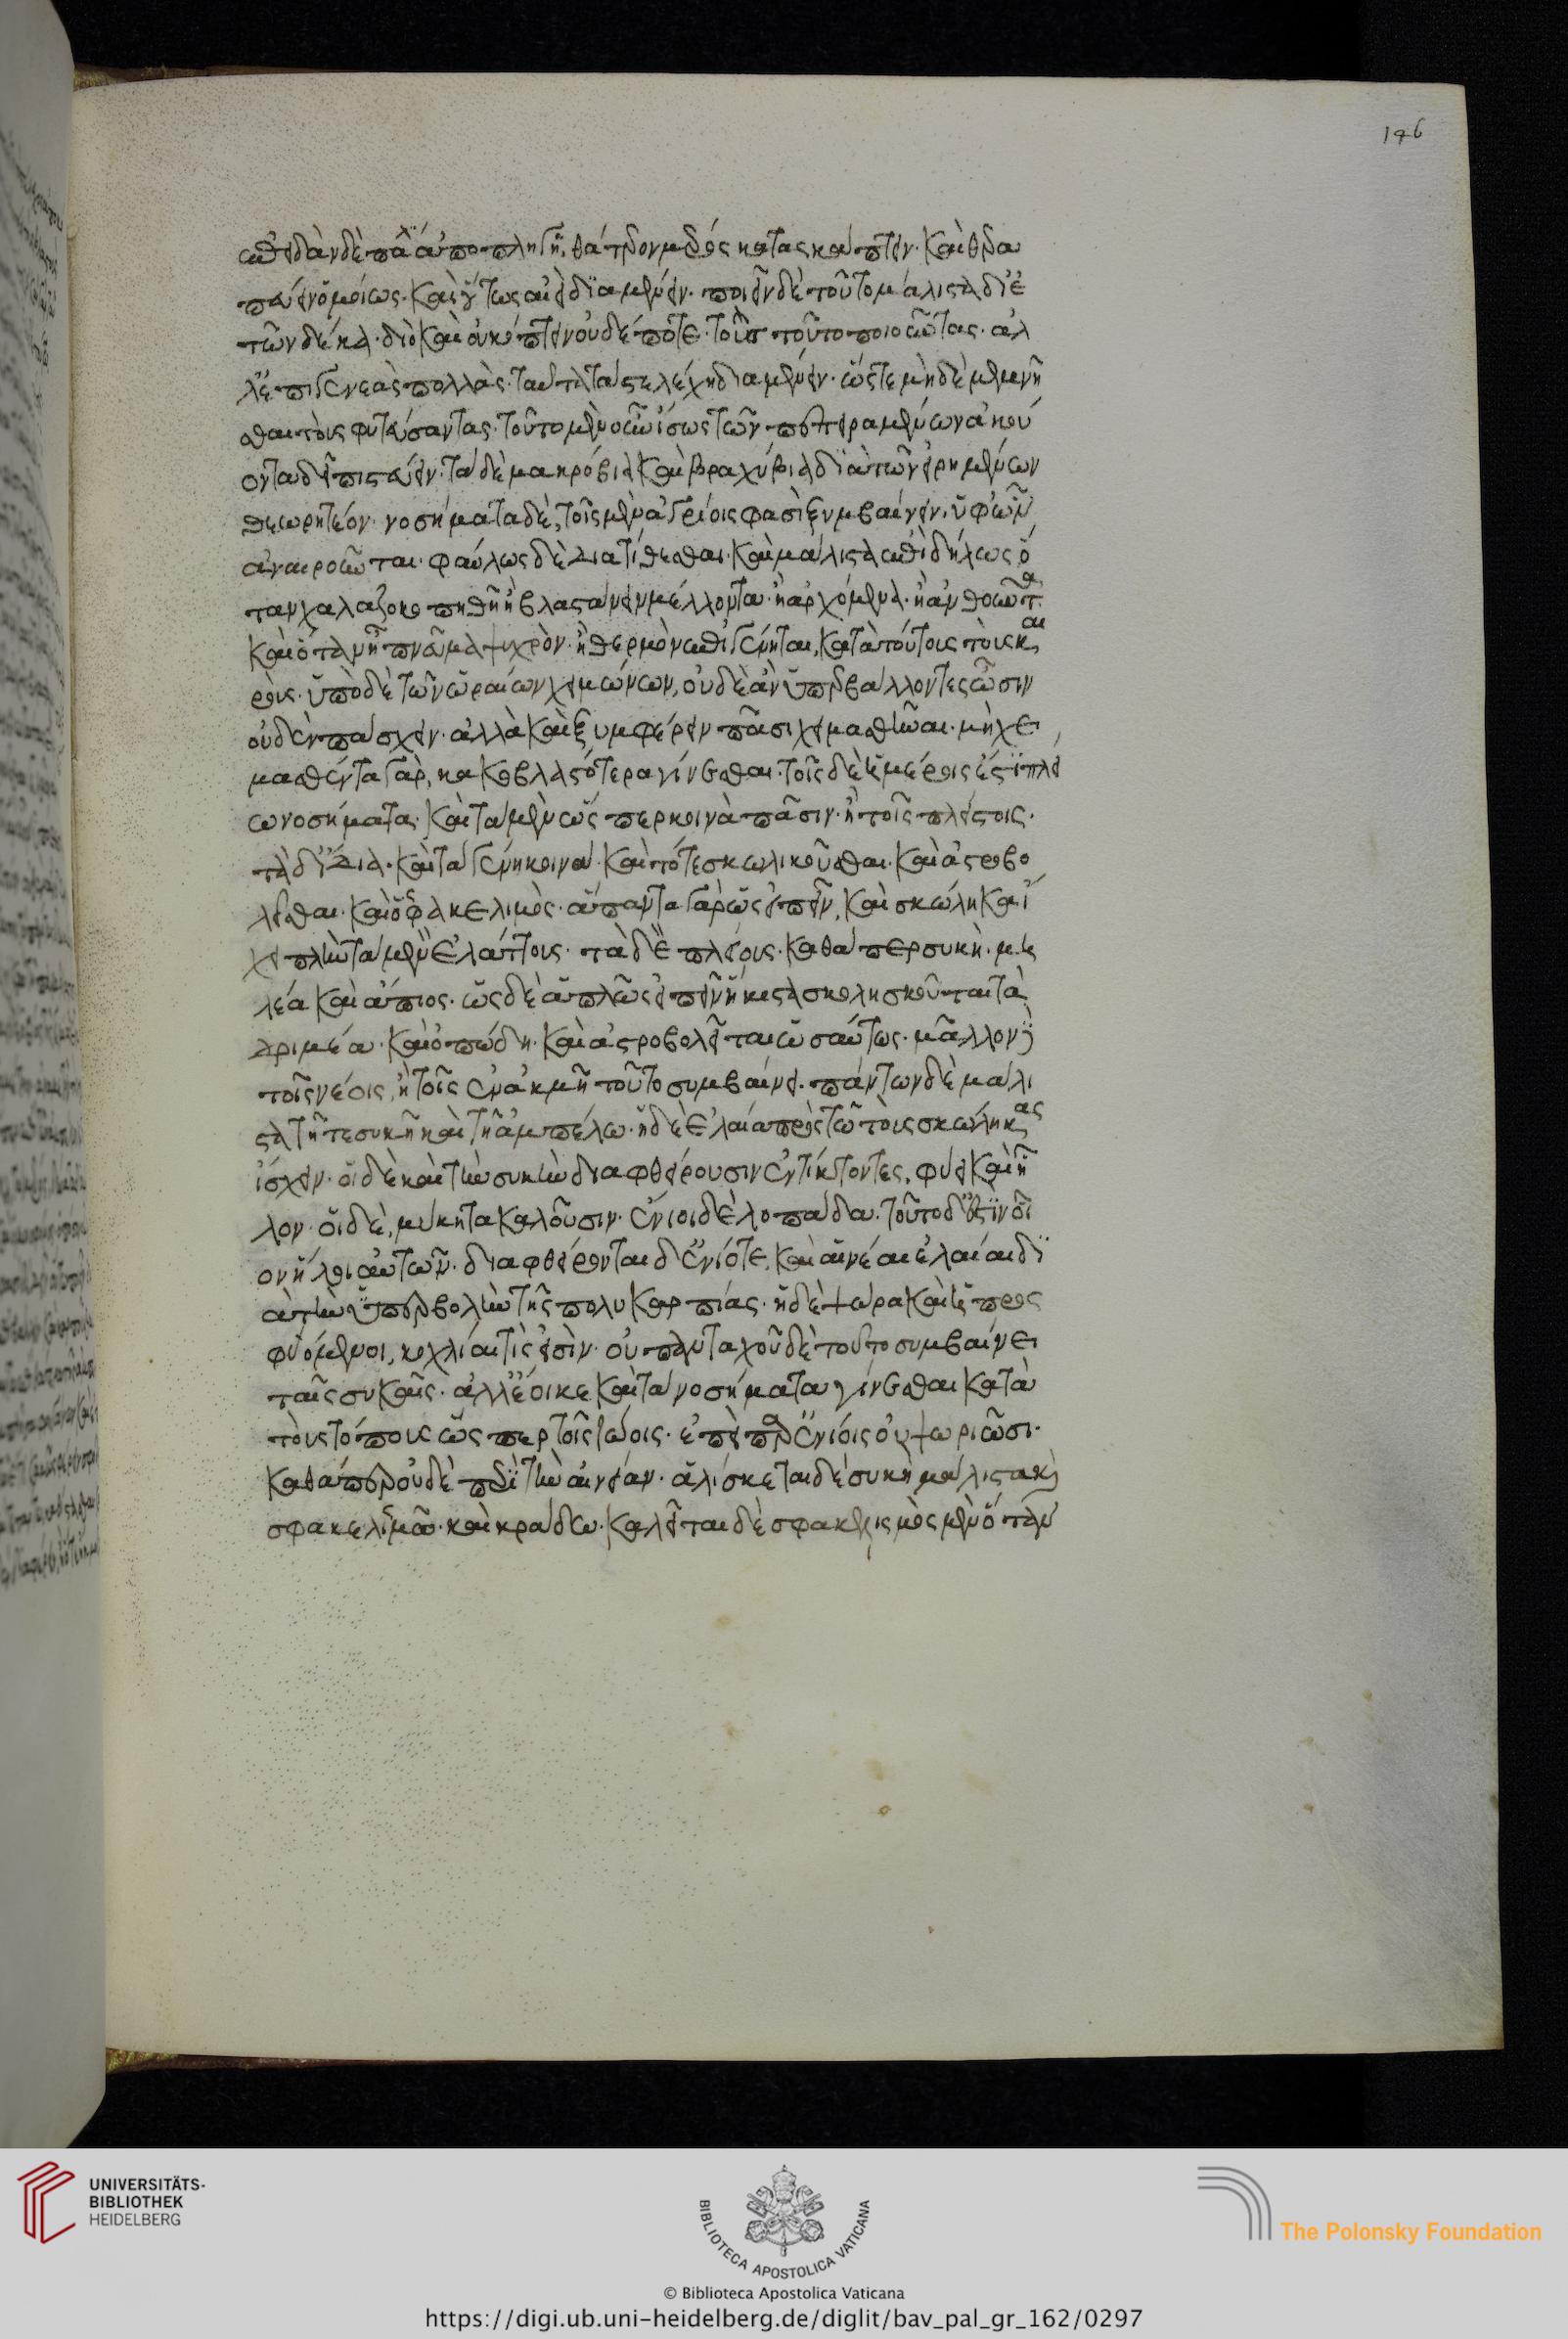 ἐπειδὰν δὲ πάλιν ἀποπλησθῇ, θάτερον μέρος κατασκάπτειν. καὶ θερα
πεύειν ὁμοίως. καὶ οὕτως αἰεὶ διαμένειν. ποιεῖν δὲ τοῦτο μάλιστα δι' ἐ
τῶν δέκα. διὸ καὶ οὐ κόπτειν οὐδέποτε. τοὺς τοῦτο ποιοῦντας. ἀλ
λ' ἐπὶ γενεὰς πολλὰς. ταυτὰ τὰ στελέχη διαμένειν. ὥστε μὴδὲ μεμνῆ
σθαι τοὺς φυτεύσαντας. τοῦτο μὲν οὖν ἴσως τῶν πεπειραμένων ἀκού
οντα δεῖ πιστεύειν. τὰ δὲ μακρόβια καὶ βραχύβια διὰ τῶν εἰρημένων
θεωρητέον. νοσήματα δὲ, τοῖς μὲν ἀγρίοις φασὶ ξυμβαίνειν. ὑφ' ὧν
ἀναιροῦνται. φαύλως δὲ διατίθεσθαι. καὶ μάλιστα ἐπιδήλως ὅ
ταν χαλαζοκοπηθῇ ἢ βλαστάνειν μέλλοντα. ἢ ἀρχόμενα. ἢ ἀνθοῦντα.
καὶ ὅταν ἢ πνεῦμα ψυχρὸν. ἢ θερμὸν ἐπιγένηται, κατὰ τούτους τοὺς και
ροὺς. ὑπὸ δὲ τῶν ὡραίων χειμώνων, οὐδὲ ἂν ὑπερβάλλοντες ὦσιν
οὐδὲν πάσχειν. ἀλλὰ καὶ ξυμφέρειν πᾶσι χειμασθῆναι. μὴ χει
μασθέντα γὰρ, κακοβλαστότερα γίνεσθαι. τοῖς δὲ ἡμέροις ἐστὶ πλεί
ω νοσήματα. καὶ τὰ μὲν ὥσπερ κοινὰ πᾶσιν. ἢ τοῖς πλείστοις.
τὰ δ' ἴδια. κατὰ γένη κοινὰ. καὶ τό τε σκωλικοῦσθαι. καὶ ἀστροβο
λεῖσθαι. καὶ ὁ σφακελισμὸς. ἅπαντα γὰρ ὡς εἰπεῖν, καὶ σκώληκα ἴ
χει πλὴν τὰ μὲν ἐλάττους. τὰ δὲ πλείους. καθάπερ συκὴ. μη
λέα καὶ ἄπιος. ὡς δὲ ἁπλῶς εἰπεῖν ἥκιστα σκοληκοῦται τὰ
δριμέα. καὶ ὀπώδη. καὶ ἀστροβολεῖται ὡσαύτως. μᾶλλον δὲ
τοῖς νέοις, ἢ τοῖς ἐν ἀκμῇ τοῦτο συμβαίνει. πάντων δὲ μάλι
στα τῇ τε συκῇ καὶ τῇ ἀμπέλω. ἡ δὲ ἐλαία πρὸς τῶ τοὺς σκώληκας
ἴσχειν. οἳ δὲ καὶ τὴν συκὴν διαφθείρουσιν ἐντίκτοντες, φύει καὶ ἧ
λον. οἱ δὲ, μύκητα καλοῦσιν. ἔνιοι δὲ λοπάδα. τοῦτο δ' ἐστὶν οἷ
ον ἥλοι αὐτῶν. διαφθείρονται δ' ἐνίοτε, καὶ αἱ νέαι ἐλαίαι δι
ὰ τὴν ὑπερβολὴν τῆς πολυκαρπίας. ἡ δὲ ψώρα καὶ οἱ προς
φυόμενοι, κοχλίαι τῆς εἰσὶν. οὐ πανταχοῦ δὲ τοῦτο συμβαίνει
ταῖς συκαῖς. ἀλλ' ἔοικε καὶ τὰ νοσήματα γίνεσθαι κατὰ
τοὺς τόπους ὥσπερ τοῖς ζώοις. ἐπεὶ παρ' ἐνίοις οὐ ψωριῶσι.
καθάπερ οὐδὲ περὶ τὴν αἰνείαν. ἁλίσκεται δὲ συκὴ μάλιστα καὶ
σφακελισμῶ. καὶ κράδω. καλεῖται δὲ σφακελισμὸς μὲν ὅταν
146
UNIVERSITÄTS-
BIBLIOTHEK
HEIDELBERG
BIBLIOTECA APOSTOLICA VATICANA
The Polonsky Foundation
© Biblioteca Apostolica Vaticana
https://digi.ub.uni-heidelberg.de/diglit/bav_pal_gr_162/0297